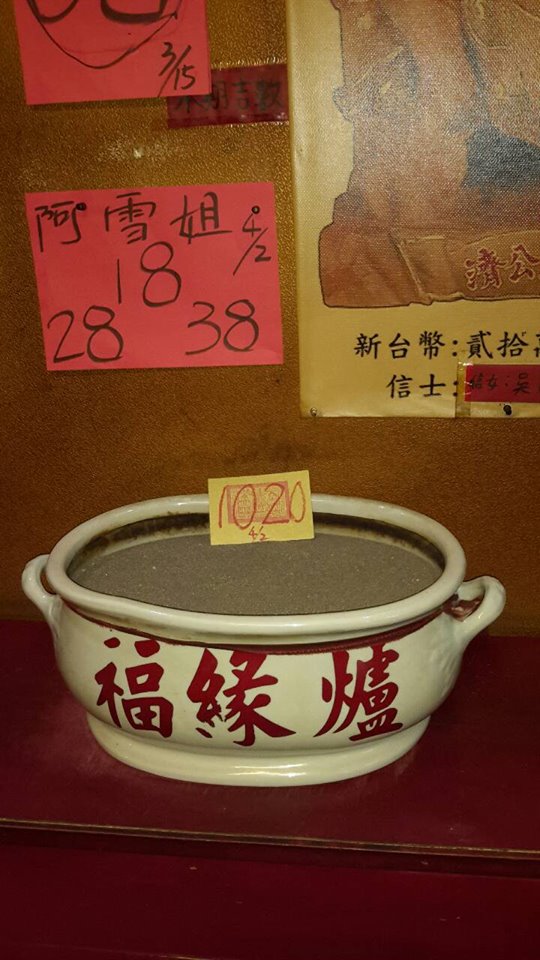 3/15
本期吉數
阿雪姐 4/2
18
28 38
濟公
新台幣:貳拾萬
信士:
信女:吳
1020
4/2
福緣爐